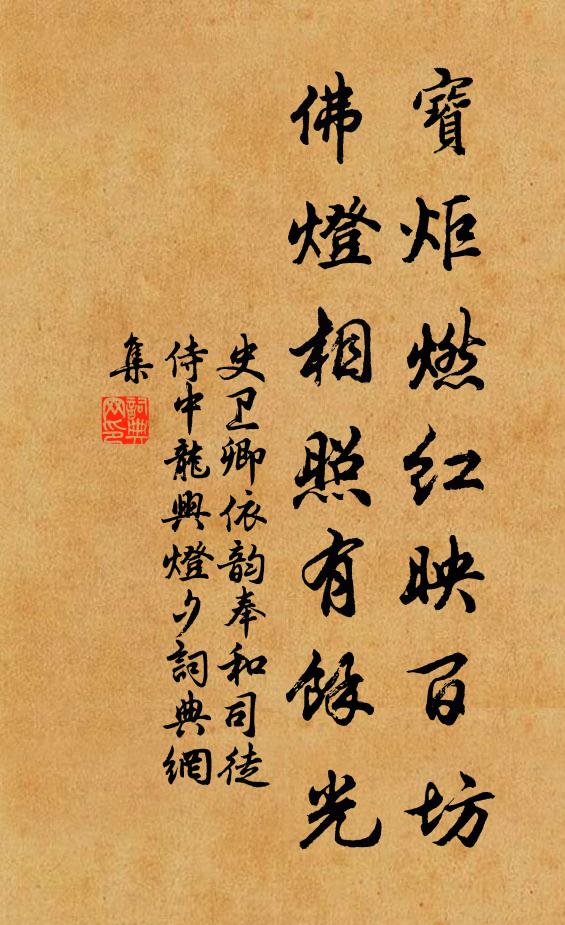 寶炬燃紅映百坊
佛燈相照有餘光
史卫卿依韵奉和司徒
侍中龍興燈夕詞典網
集
詞典
网印